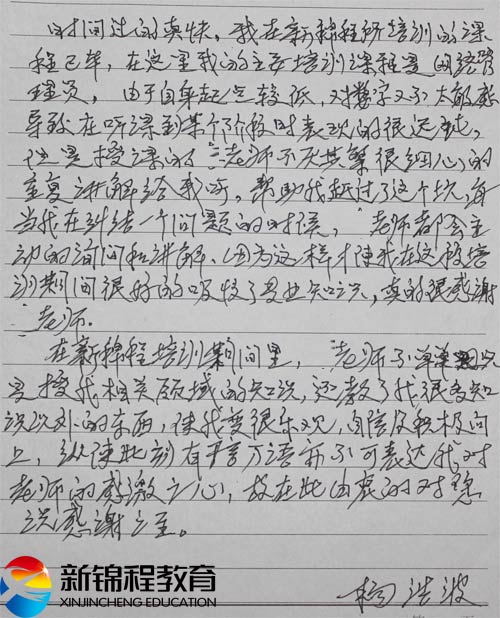 时间过的真快，我在新锦程所培训的课
程已毕，在这里我的主要培训课程是网络管
理员，由于自身起点较低，对数字又不太敏感
导致在听课到某个阶段时表现的很迟钝，
但是授课的 老师不厌其繁很细心的
重复讲解给我听，帮助我越过了这个坑，每
当我在纠结一个问题的时候， 老师都会主
动的询问和讲解，因为这样才使我在这段培
训期间很好的吸收了专业知识，真的很感谢
老师。
在新锦程培训期间里， 老师不单单只
是授我相关领域的知识，还教了我很多知
识以外的东西，使我变很乐观，自信及积极向
上，纵使此刻有千言万语亦不可表达我对
老师的感激之心，故在此由衷的对您
说感谢之至。
杨浩波
新锦程教育
XINJINCHENG EDUCATION